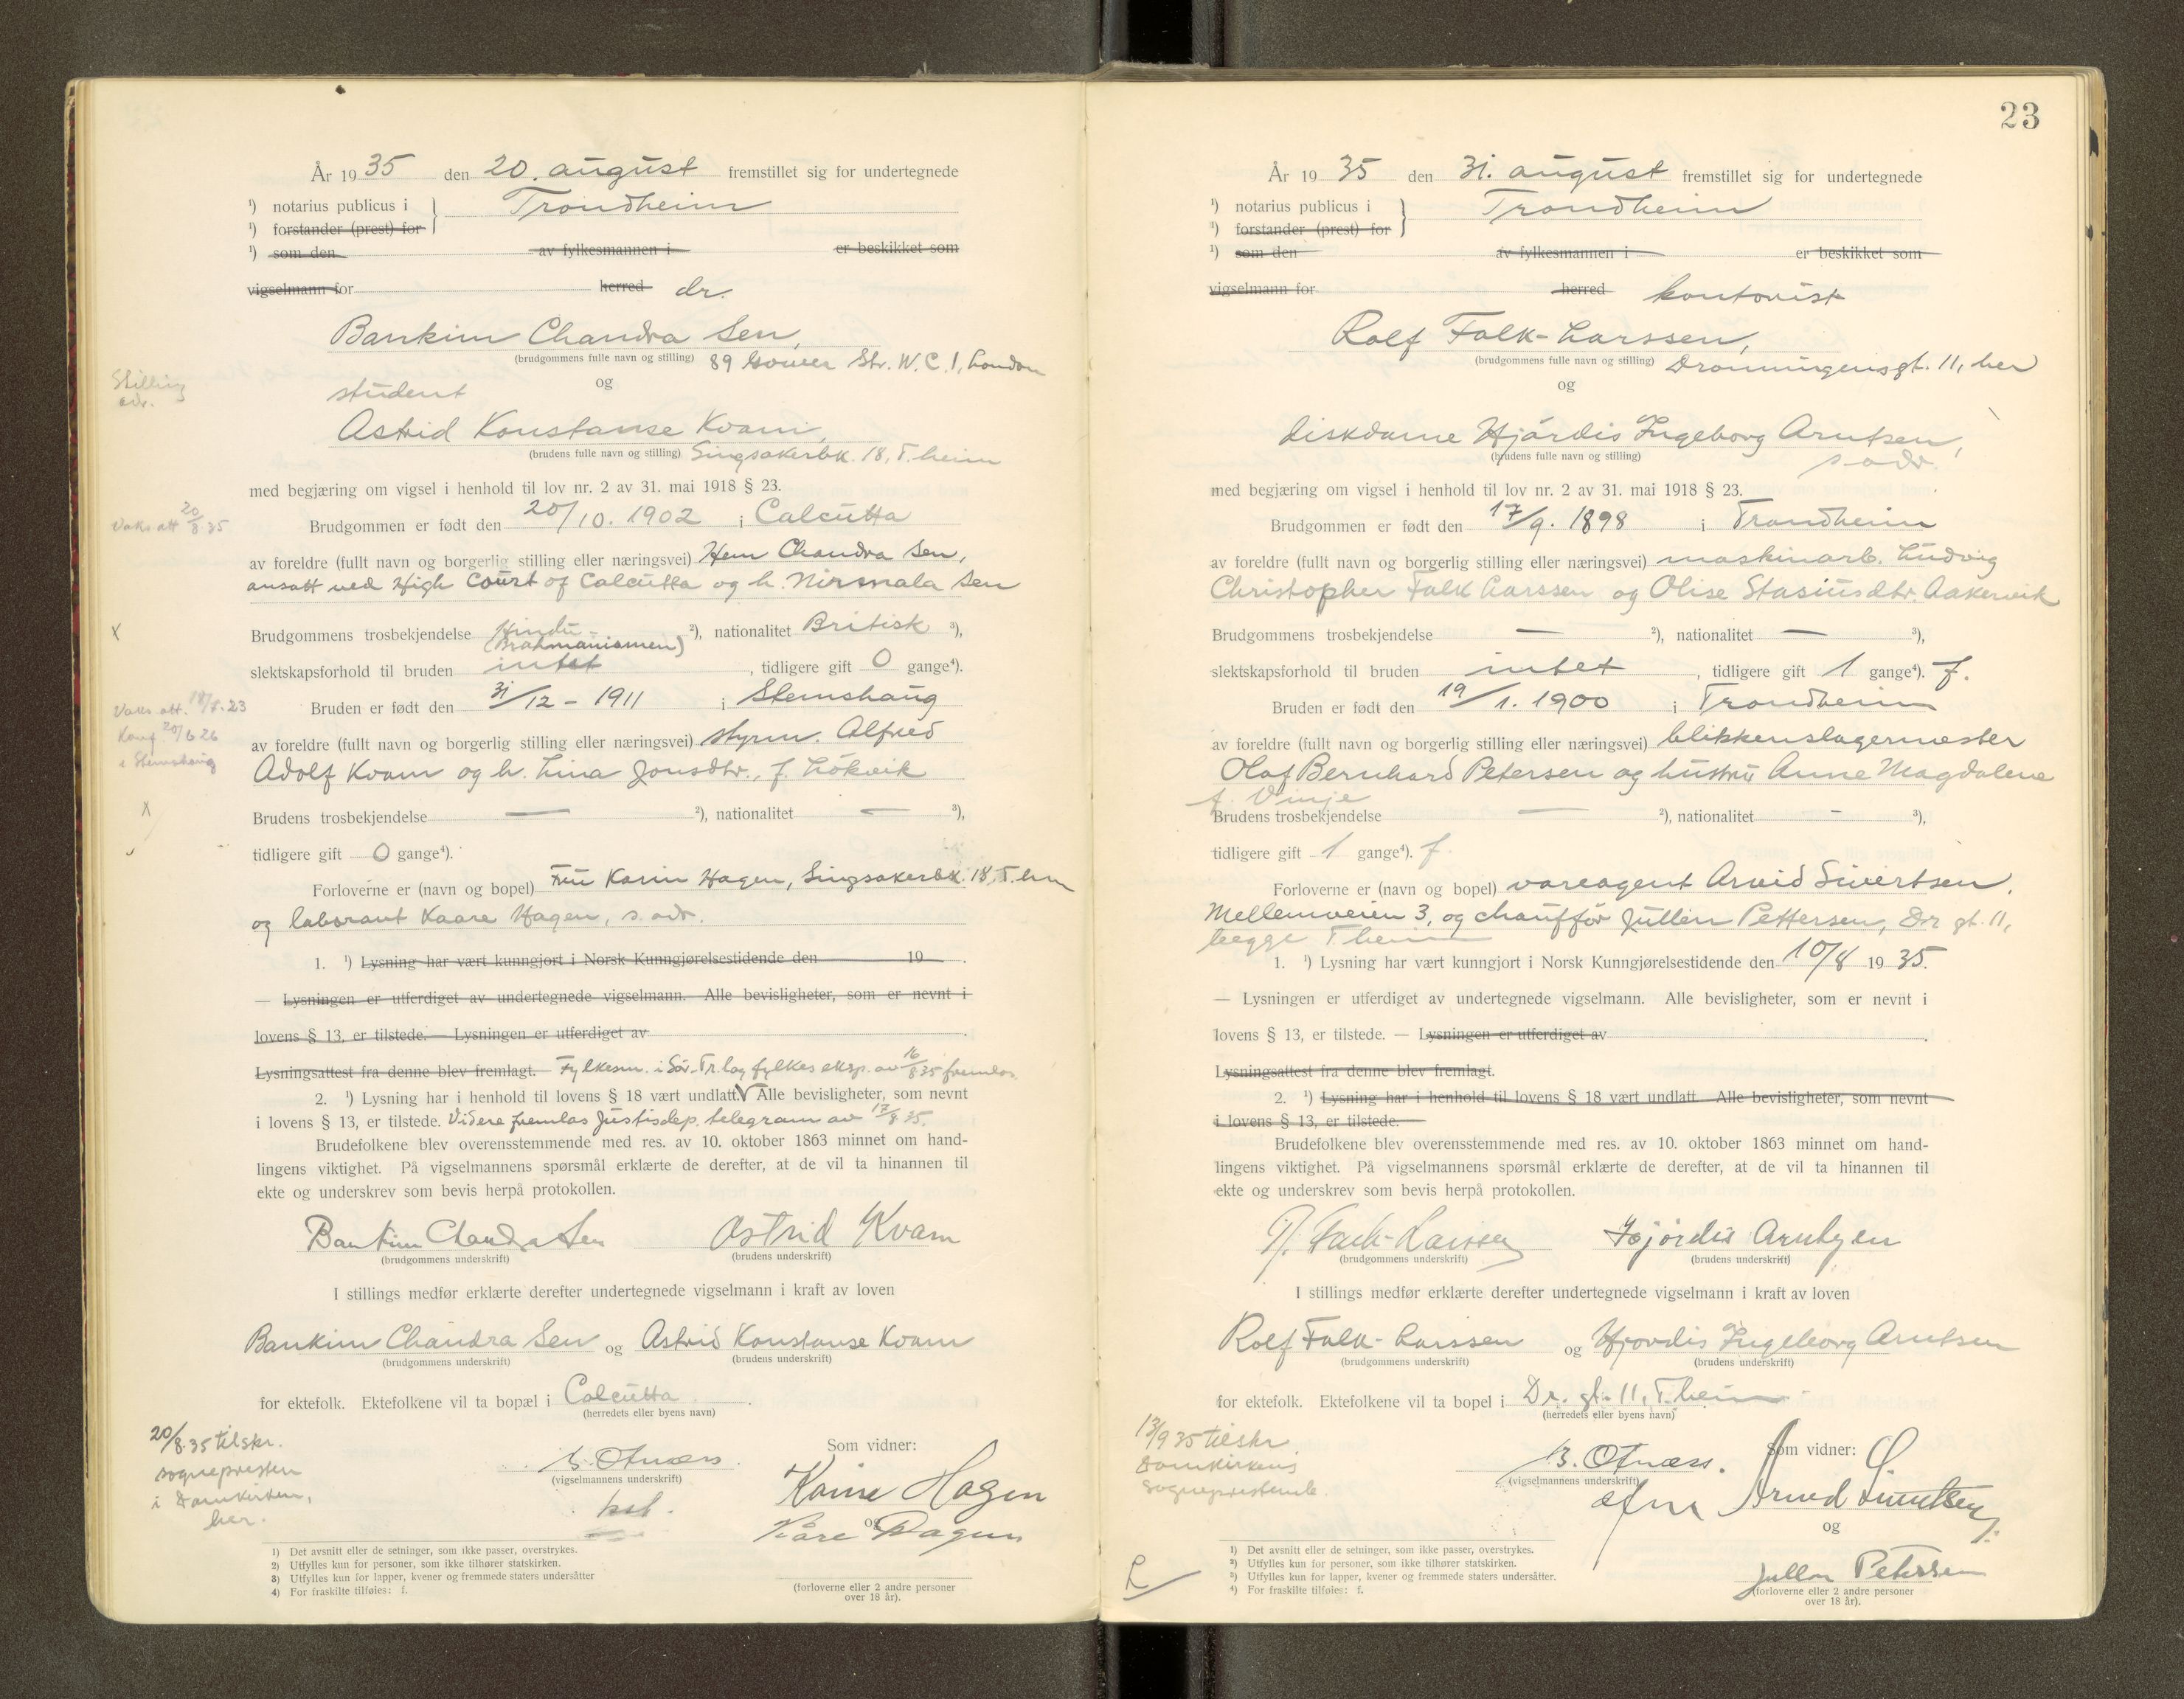 År 19 35 den 20. august fremstillet sig for undertegnede
¹) notarius publicus i Trondheim
¹) forstander (prest) for
¹) som den av fylkesmannen i er beskikket som
vigselmann for herred dr.
Bankim Chandra Sen,
(brudgommens fulle navn og stilling) 89 Gower Str. W.C.1, London
og
Stilling
adr.
student
Astrid Konstanse Kvam,
(brudens fulle navn og stilling) Singsakerbk. 18, T.heim
med begjæring om vigsel i henhold til lov nr. 2 av 31. mai 1918 § 23.
Vaks att 20/8 35
Brudgommen er født den 20/10. 1902 i Calcutta
av foreldre (fullt navn og borgerlig stilling eller næringsvei) Hem Chandra Sen,
ansatt ved High Court of Calcutta og h. Nirmala Sen
x
Brudgommens trosbekjendelse Hindu- (Brahmanismen) ²), nationalitet Britisk ³),
slektskapsforhold til bruden intet, tidligere gift 0 gange⁴).
Bruden er født den 31/12 - 1911 i Stemshaug
Vaks att. 18/7.23
Konf. 20/6 26
i Stemshaug
av foreldre (fullt navn og borgerlig stilling eller næringsvei) styrm. Alfred
Adolf Kvam og h. Lina Jonsdtr., f. Lökvik
x
Brudens trosbekjendelse — ²), nationalitet — ³),
tidligere gift 0 gange⁴).
Forloverne er (navn og bopel) Fru Karin Hagen, Singsakerbk. 18, T.hm
og laborant Kaare Hagen, s. adr.
1. ¹) Lysning har vært kunngjort i Norsk Kunngjørelsestidende den 19 .
— Lysningen er utferdiget av undertegnede vigselmann. Alle bevisligheter, som er nevnt i
lovens § 13, er tilstede. — Lysningen er utferdiget av .
Lysningsattest fra denne blev fremlagt. Fylkesm. i Sör-Tr.lag fylkes eksp. av 16/8 35 fremlas.
2. ¹) Lysning har i henhold til lovens § 18 vært undlatt. V Alle bevisligheter, som nevnt
i lovens § 13, er tilstede. Videre fremlas Justisdep. telegram av 17/8 35.
Brudefolkene blev overensstemmende med res. av 10. oktober 1863 minnet om hand-
lingens viktighet. På vigselmannens spørsmål erklærte de derefter, at de vil ta hinannen til
ekte og underskrev som bevis herpå protokollen.
Bankim Chandra Sen Astrid Kvam
(brudgommens underskrift) (brudens underskrift)
I stillings medfør erklærte derefter undertegnede vigselmann i kraft av loven
Bankim Chandra Sen og Astrid Konstanse Kvam
(brudgommens underskrift) (brudens underskrift)
for ektefolk. Ektefolkene vil ta bopæl i Calcutta.
(herredets eller byens navn)
20/8.35 tilskr.
sognepresten
i Domkirken,
her.
B. Otnæss.
(vigselmannens underskrift)
Som vidner:
Karin Hagen
og
Kåre Hagen
1) Det avsnitt eller de setninger, som ikke passer, overstrykes.
2) Utfylles kun for personer, som ikke tilhører statskirken.
3) Utfylles kun for lapper, kvener og fremmede staters undersåtter
4) For fraskilte tilføies: f.
(forloverne eller 2 andre personer
over 18 år).
23
År 19 35 den 31. august fremstillet sig for undertegnede
¹) notarius publicus i Trondheim
¹) forstander (prest) for
¹) som den av fylkesmannen i er beskikket som
vigselmann for herred kontorist
Rolf Falk-Larssen,
(brudgommens fulle navn og stilling) Dronningensgt. 11, her
og
diskdame Hjördis Ingeborg Arntsen,
(brudens fulle navn og stilling) s adr.
med begjæring om vigsel i henhold til lov nr. 2 av 31. mai 1918 § 23.
Brudgommen er født den 17/9. 1898 i Trondheim
av foreldre (fullt navn og borgerlig stilling eller næringsvei) maskinarb. Ludvig
Christopher Falk Larssen og Olise Stasiusdtr. Aakervik
Brudgommens trosbekjendelse — ²), nationalitet — ³),
slektskapsforhold til bruden intet, tidligere gift 1 gange⁴). f.
Bruden er født den 19/1. 1900 i Trondheim
av foreldre (fullt navn og borgerlig stilling eller næringsvei) blikkenslagermester
Olaf Bernhard Petersen og hustru Anne Magdalene
f. Vinje
Brudens trosbekjendelse — ²), nationalitet - ³),
tidligere gift 1 gange⁴). f.
Forloverne er (navn og bopel) vareagent Arvid Sivertsen,
Mellemveien 3, og chaufför Jullen Pettersen, Dr gt. 11,
begge T heim
1. ¹) Lysning har vært kunngjort i Norsk Kunngjørelsestidende den 10/8 19 35.
— Lysningen er utferdiget av undertegnede vigselmann. Alle bevisligheter, som er nevnt i
lovens § 13, er tilstede. — Lysningen er utferdiget av .
Lysningsattest fra denne blev fremlagt.
2. ¹) Lysning har i henhold til lovens § 18 vært undlatt Alle bevisligheter, som nevnt
i lovens § 13, er tilstede.
Brudefolkene blev overensstemmende med res. av 10. oktober 1863 minnet om hand-
lingens viktighet. På vigselmannens spørsmål erklærte de derefter, at de vil ta hinannen til
ekte og underskrev som bevis herpå protokollen.
R. Falk-Larssen Hjördis Arntzen
(brudgommens underskrift) (brudens underskrift)
I stillings medfør erklærte derefter undertegnede vigselmann i kraft av loven
Rolf Falk-Larssen og Hjördis Ingeborg Arntsen
(brudgommens underskrift) (brudens underskrift)
for ektefolk. Ektefolkene vil ta bopel i Dr. gt. 11, T.heim
(herredets eller byens navn)
13/9 35 tilskr.
Domkirkens
sogneprestemb.
B. Otnæss.
(vigselmannens underskrift)
Som vidner:
Arvid Sivertsen
og
Jullen Petersen
1) Det avsnitt eller de setninger, som ikke passer, overstrykes.
²) Utfylles kun for personer, som ikke tilhører statskirken.
³) Utfylles kun for lapper, kvener og fremmede staters undersåtter.
⁴) For fraskilte tilføies: f.
(forloverne eller 2 andre personer
over 18 år).